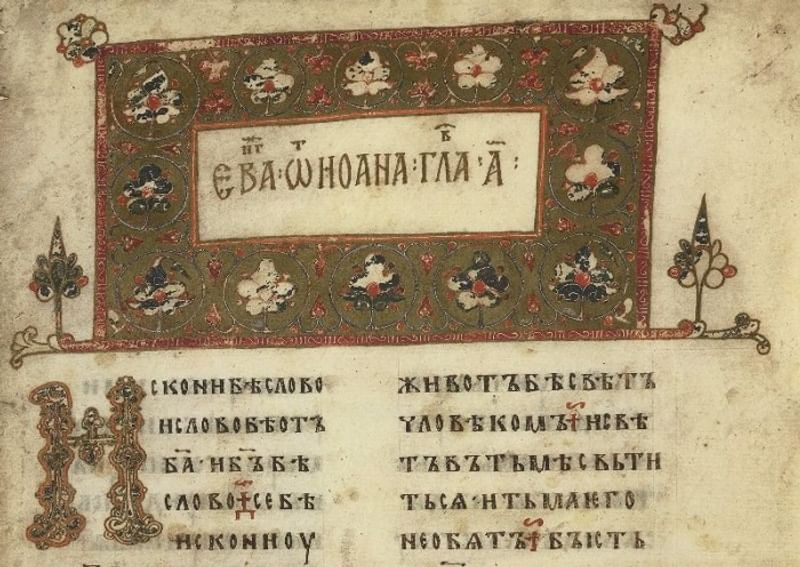 ЕВА҃НГ·Ѿ ИОАНА·ГЛАВ·А҃:
ИСКОНИБѢСЛОВО
ИСЛОВОБѢОТЪ
БА҃·ИБЪ҃БѢ
СЛОВО·СЕБѢ
ИСКОНИОУ
ЖИВОТЪБѢСВѢТЪ
ЧЛОВѢКОМЪ·ИСВѢ
ТЪВЪТЬМѢСВЬТИ
ТЬСѦ·ИТЬМАѤГО
НЕОБѦТЪ·БЪІСТЬ